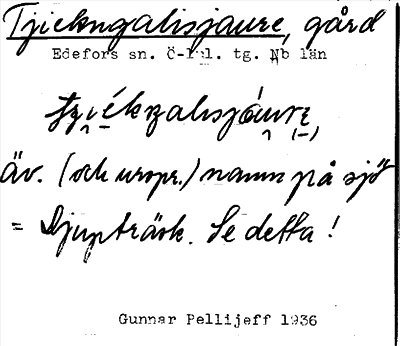 Tjiekngalisjaure, gård
Edefors sn. Ö-l:l. tg. Nb län
äv. (och urspr.) namn på sjö
= Djupträsk. Se detta!
Gunnar Pellijeff 1936